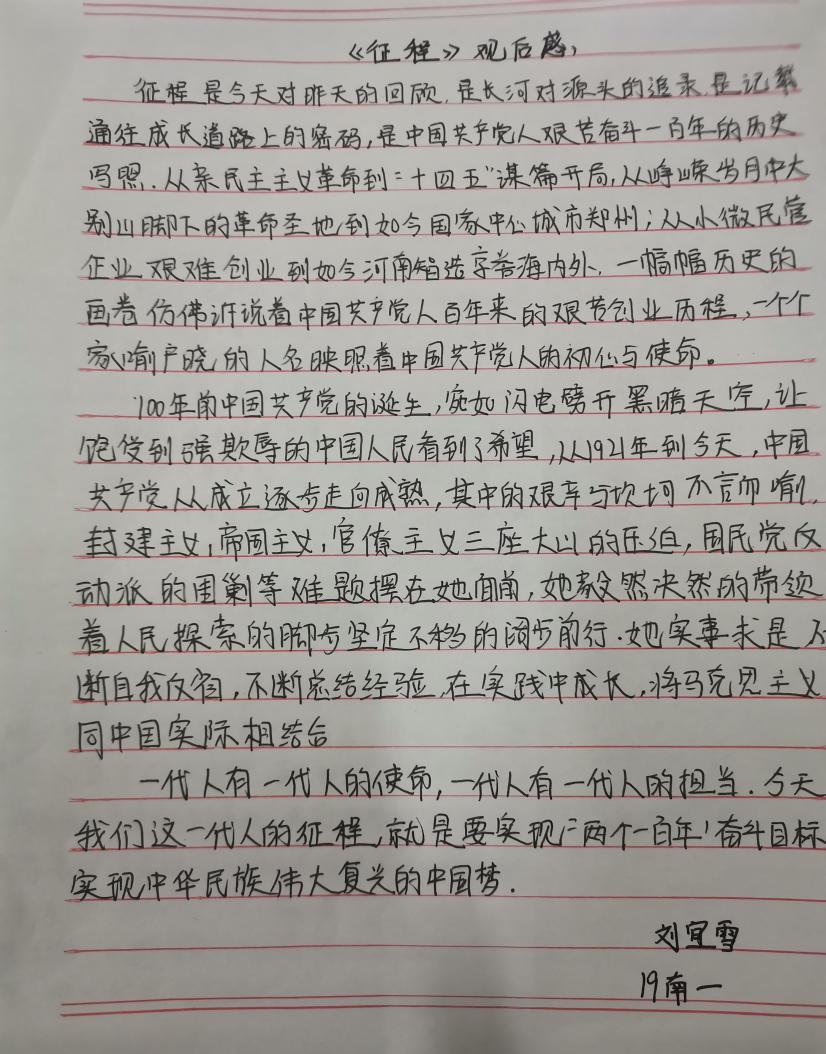 《征程》观后感
征程是今天对昨天的回顾,是长河对源头的追录,是记载
通往成长道路上的密码,是中国共产党人艰苦奋斗一百年的历史
写照.从新民主主义革命到“十四五”谋篇开局,从峥嵘岁月中大
别山脚下的革命圣地,到如今国家中心城市郑州;从小微民营
企业艰难创业到如今河南智造享誉海内外.一幅幅历史的
画卷仿佛诉说着中国共产党人百年来的艰苦创业历程,一个个
家喻户晓的人名映照着中国共产党人的初心与使命。
100年前中国共产党的诞生,宛如闪电劈开黑暗天空,让
饱受到强欺辱的中国人民看到了希望,从1921年到今天,中国
共产党从成立逐步走向成熟,其中的艰辛与坎坷不言而喻,
封建主义,帝国主义,官僚主义三座大山的压迫,国民党反
动派的围剿等难题摆在她面前,她毅然决然的带领
着人民探索的脚步坚定不移的阔步前行.她实事求是不
断自我反省,不断总结经验,在实践中成长,将马克思主义
同中国实际相结合
一代人有一代人的使命,一代人有一代人的担当.今天
我们这一代人的征程,就是要实现“两个一百年”奋斗目标
实现中华民族伟大复兴的中国梦.
刘宜雪
19南一